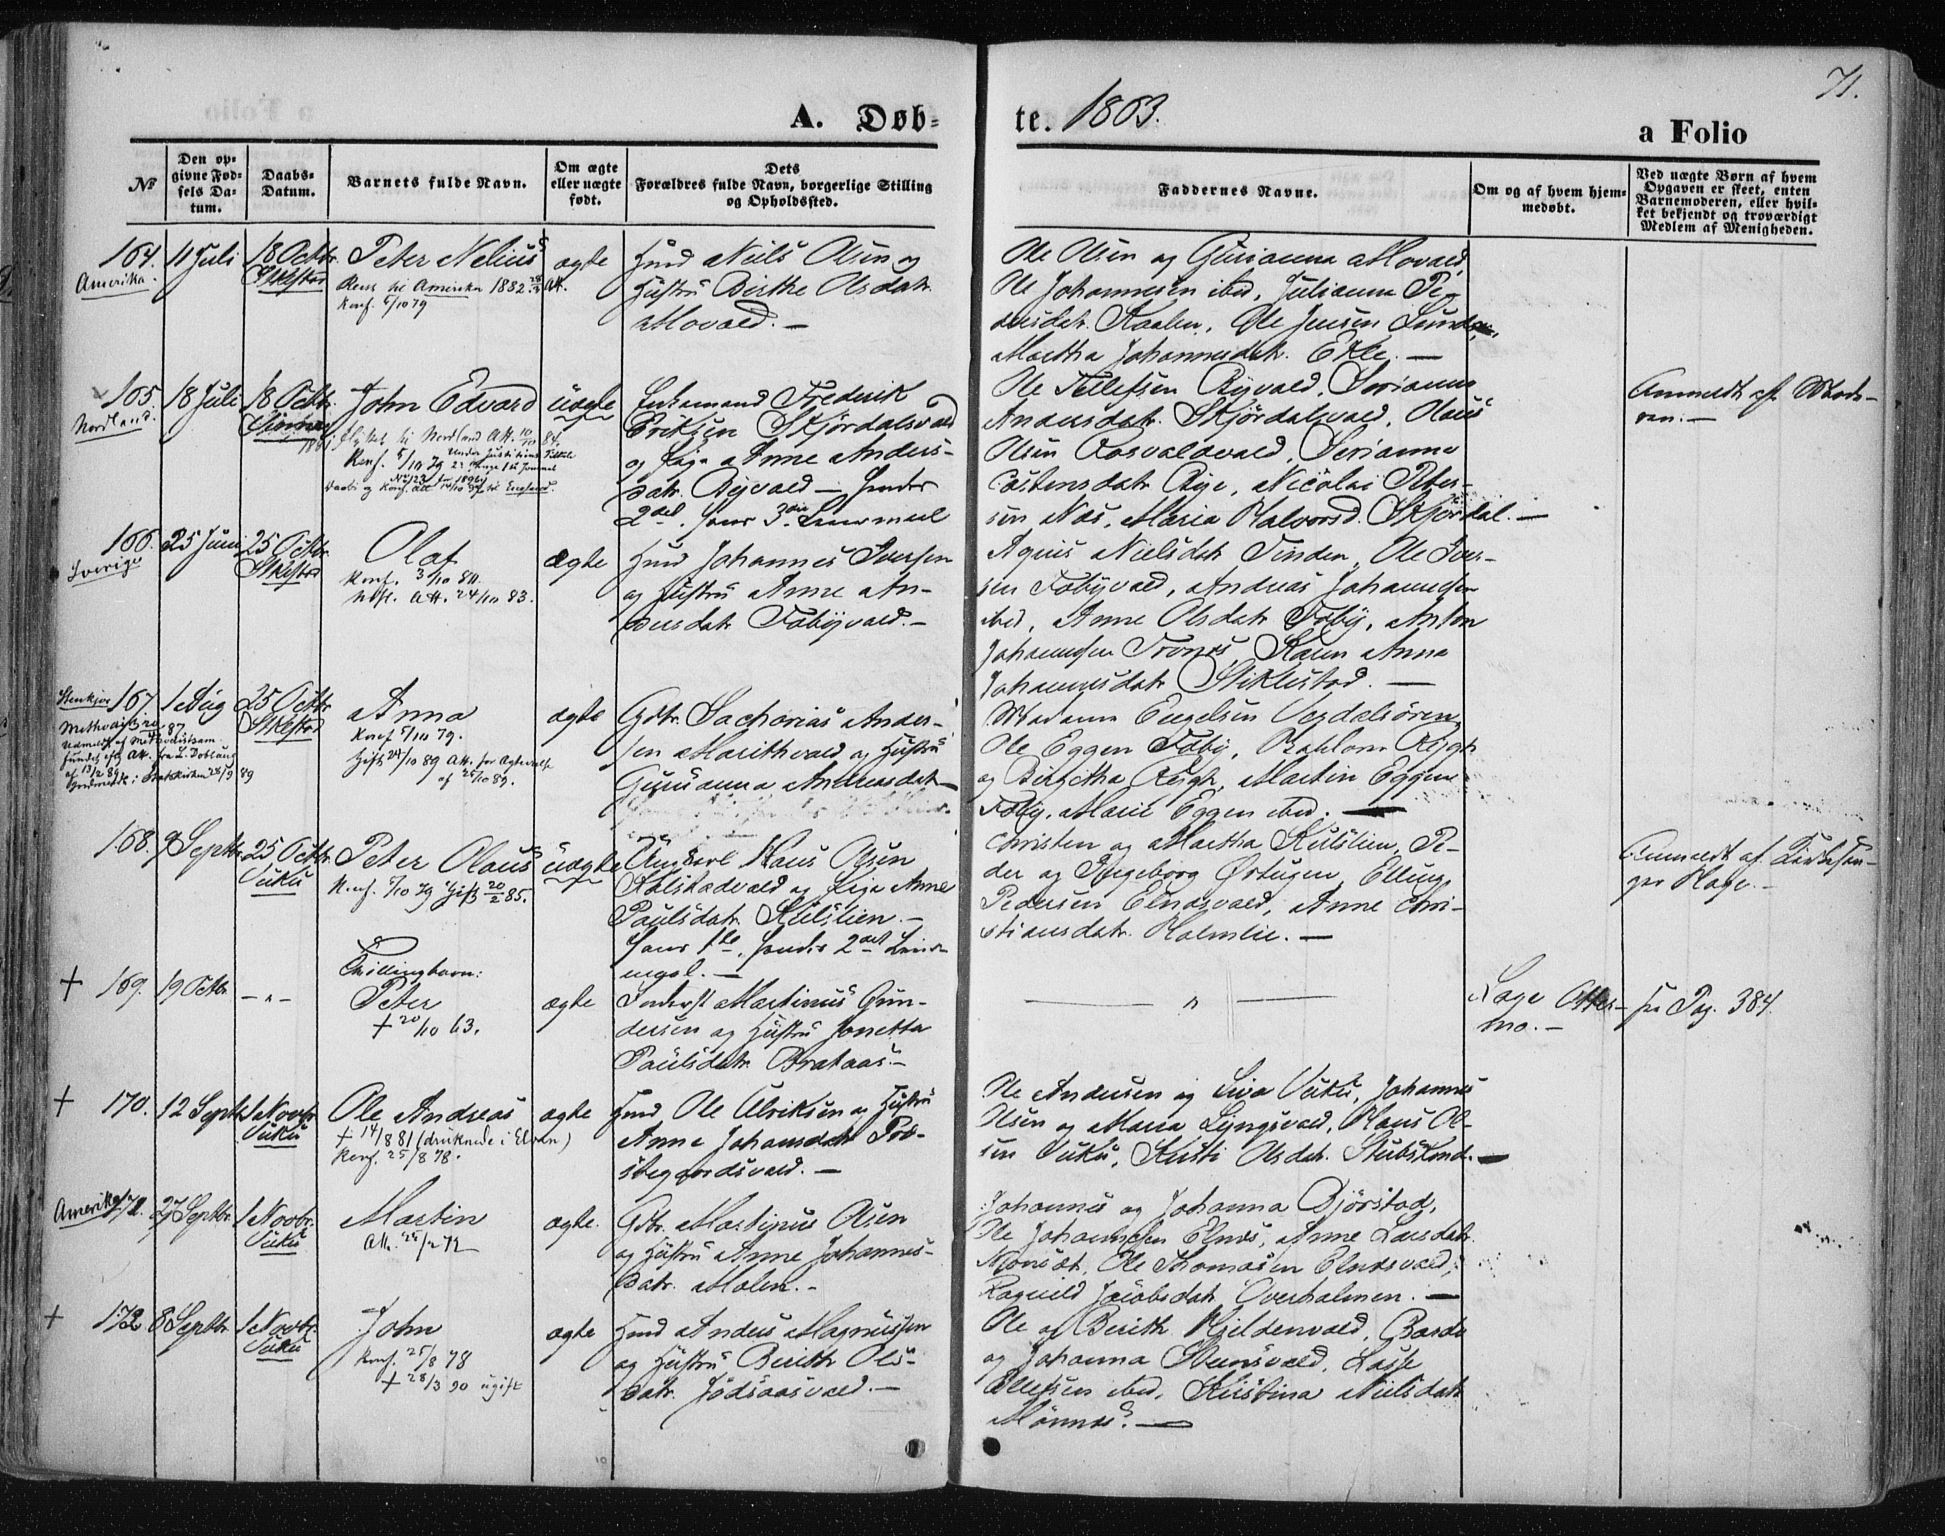 71.
A. Døb-
te. 1863.
a Folio
№
Den op-
givne Fød-
sels Da-
tum.
Daabs-
Datum.
Barnets fulde Navn.
Om ægte
eller uægte
født.
Dets
Forældres fulde Navn, borgerlige Stilling
og Opholdssted.
Faddernes Navne.
Om og af hvem hjem-
medøbt.
Ved uægte Børn af hvem
Opgaven er skeet, enten
Barnemoderen, eller hvil-
ket bekjendt og troværdigt
Medlem af Menigheden.
164.
Amerika.
11 Juli
18 Octbr.
Stklstad
Peter Nelius
Amerika 1882
Konf. 5/10 79
ægte
Husmd Niels Olsen og
Hustru Birthe Olsdatr.
Movald. —
Ole Olsen og Gurianna Movald,
Ole Johannesen ibid, Julianna Pe-
dersdatr. Kaalen, Ole Jensen Lunden,
Martha Johannesdatr. Exle. —
165.
Nordland.
18 Juli
18 Octbr.
John Edvard
flyttet til Nordland Att. 10/10 84.
Konf. 5/10 79
England.
uægte
Enkemand Frederik
Eriksen Skjördalsvald
og Pige Anne Anders-
datr. Byvald — Hendes
2det, hans 3die Leiermaal
Ole Tellefsen Byvald, Serianna
Andersdatr. Skjördalsvald, Olaus
Olsen Rosvaldvald, Serianna
Costensdatr Bye, Nicolai Peter-
sen Næs, Maria Halvorsd. Skjördal. —
Anmeldt af Mode-
ren. —
166.
Sverige
25 Juni
25 Octbr.
Stklstad
Olaf
Konf. 3/10 80.
Utfl. Att. 24/10 83.
ægte
Husmd Johannes Iversen
og Hustru Anne An-
dersdatr Fobyvald. —
Agnes Nielsdatr Tinden, Ole Iver-
sen Fobyvald, Andreas Johannesen
ibid, Anne Olsdatr Foby, Anton
Johannesen Trones, Karen Anna
Johannesdatr Stiklestad. —
Stenkjær
167.
1 Aug
25 Octbr.
Stklstad
Anna
Konf 5/10 79.
Gift 24/10 89 Att. for Ægteskab
af 25/10 89.
ægte
Gbr. Sacharias Ander-
sen Marithvald og Hustru
Gurianna Andreasdatr —
Madame Engelsen Verdalsören,
Ole Eggen Foby, Rygh
og Birgetha Rygh, Martin Eggen
Foby, Marie Eggen ibid. —
168.
9 Septbr.
25 Octbr.
Vuku
Peter Olaus
Konf. 5/10 79 Gift 20/2 85.
uægte
Ungkarl Hans Olsen
Kolstadvald og Pige Anne
Paulsdatr. Kulslien. —
Hans 1ste, hendes 2det Leier-
maal. —
Christen og Martha Kulslien, Pe-
der og Ingeborg Ørtugen, Elling
Pedersen Elnæsvald, Anne Chri-
stiansdatr. Holmlie. —
Anmeldt af Kirkesan-
ger Hage. —
+
169.
19 Octbr.
— „ —
Tvillingbarn:
Peter
+ 20/10 63.
ægte
Inderst Martinus Gun-
dersen og Hustru Jonetta
Paulsdatr. Brataas. —
— „ —
Lage Otter-
mo. —
se Pag. 384.
+
170.
12 Septbr
1 Novbr.
Vuku
Ole Andreas
+ 14/8 81 (druknede i Elven)
Konf. 25/8 78.
ægte
Husmd Ole Ulriksen og Hustru
Anne Johansdatr Præ-
stegaardsvald. —
Ole Andersen og Siva Vuku, Johannes
Olsen og Maria Lyngsvald, Hans Ol-
sen Vuku, Kirsti Olsdatr. Stubskind. —
Amerika
171.
27 Septbr.
1 Novbr.
Vuku
Martin
Att. 72
ægte.
Gbr. Martinus Olsen
og Hustru Anne Johannes-
datr. Molen. —
Johannes og Johanna Bjørstad,
Ole Johannesen Elnæs, Anne Larsdatr.
Ole Thomasen Elnæsvald,
Ragnild Jacobsdatr Overholmen. —
+
172
8 Septbr
1 Novbr.
Vuku
John
Konf. 25/8 78
+ 28/3 90 ugift
ægte
Husmd Anders Magnussen
og Hustru Berith Ols-
datr. Jödsaasvald. —
Ole og Berith Hjeldenvald, Bardo
og Johanna Steinsvald, Lasse
Ellefsen ibid, Kristina Nielsdatr
Mönnes. —